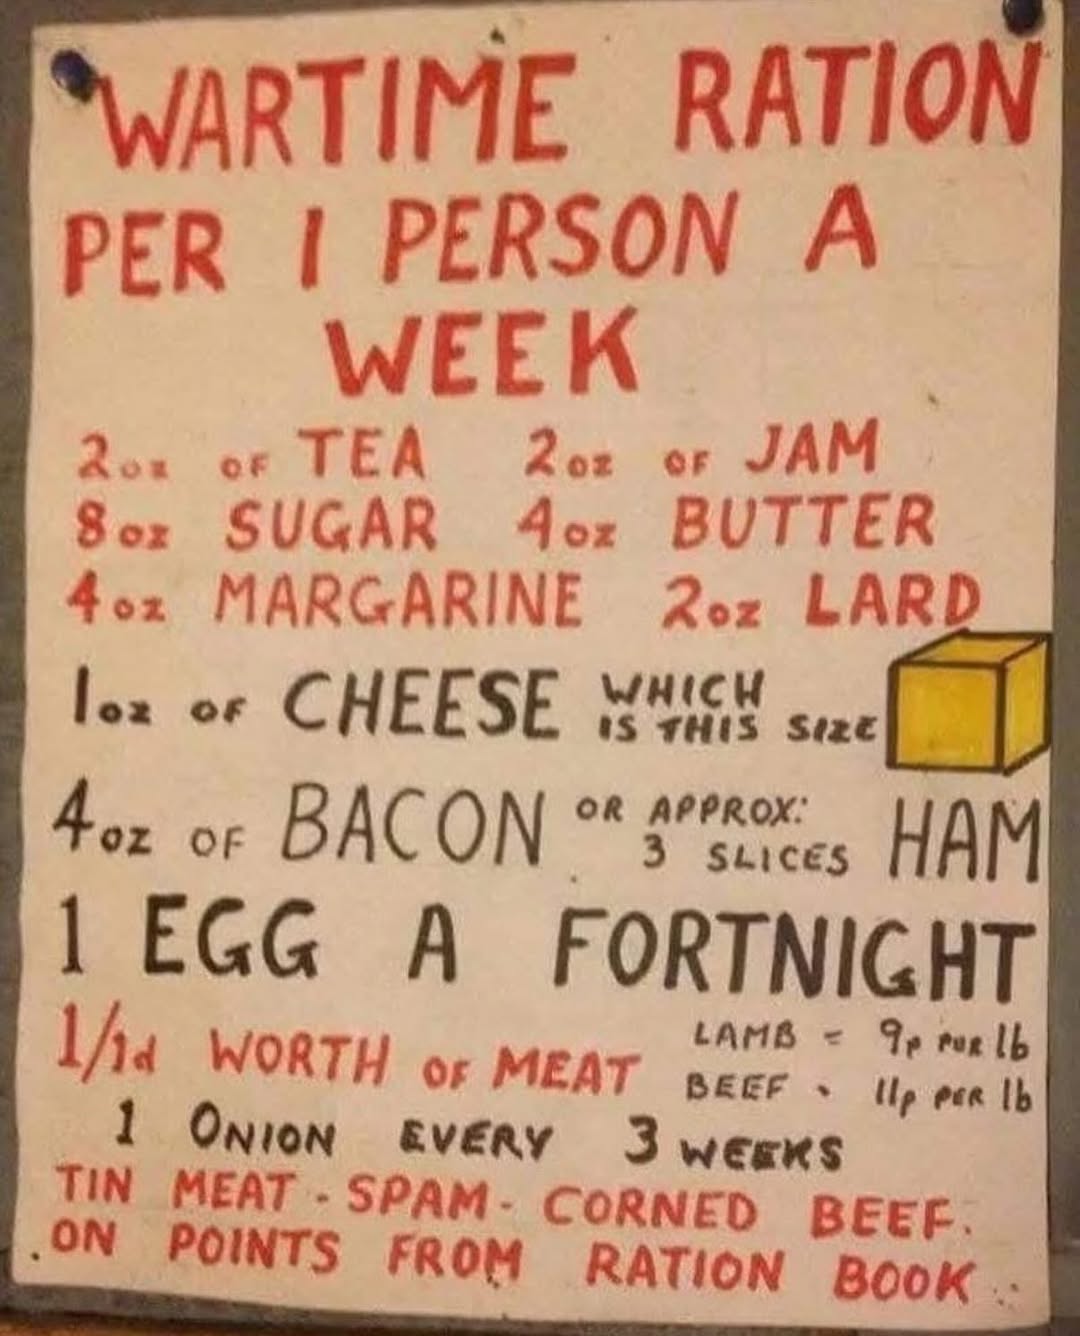 WARTIME RATION
PER 1 PERSON A
WEEK
2oz OF TEA 2oz OF JAM
8oz SUGAR 4oz BUTTER
4oz MARGARINE 2oz LARD
1oz OF CHEESE WHICH IS THIS SIZE
4oz OF BACON OR APPROX: 3 SLICES HAM
1 EGG A FORTNIGHT
1/1d WORTH OF MEAT LAMB = 9p PUR lb
BEEF - 11p PER lb
1 ONION EVERY 3 WEEKS
TIN MEAT - SPAM - CORNED BEEF.
ON POINTS FROM RATION BOOK